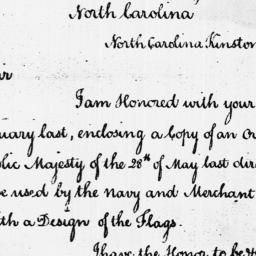 North Carolina
North Carolina Kinston
I am Honored with your
uary last, enclosing a Copy of an Or
lic Majesty of the 28th of May last dire
e used by the Navy and Merchant
th a Design of the Flags.
I have the Honor to be